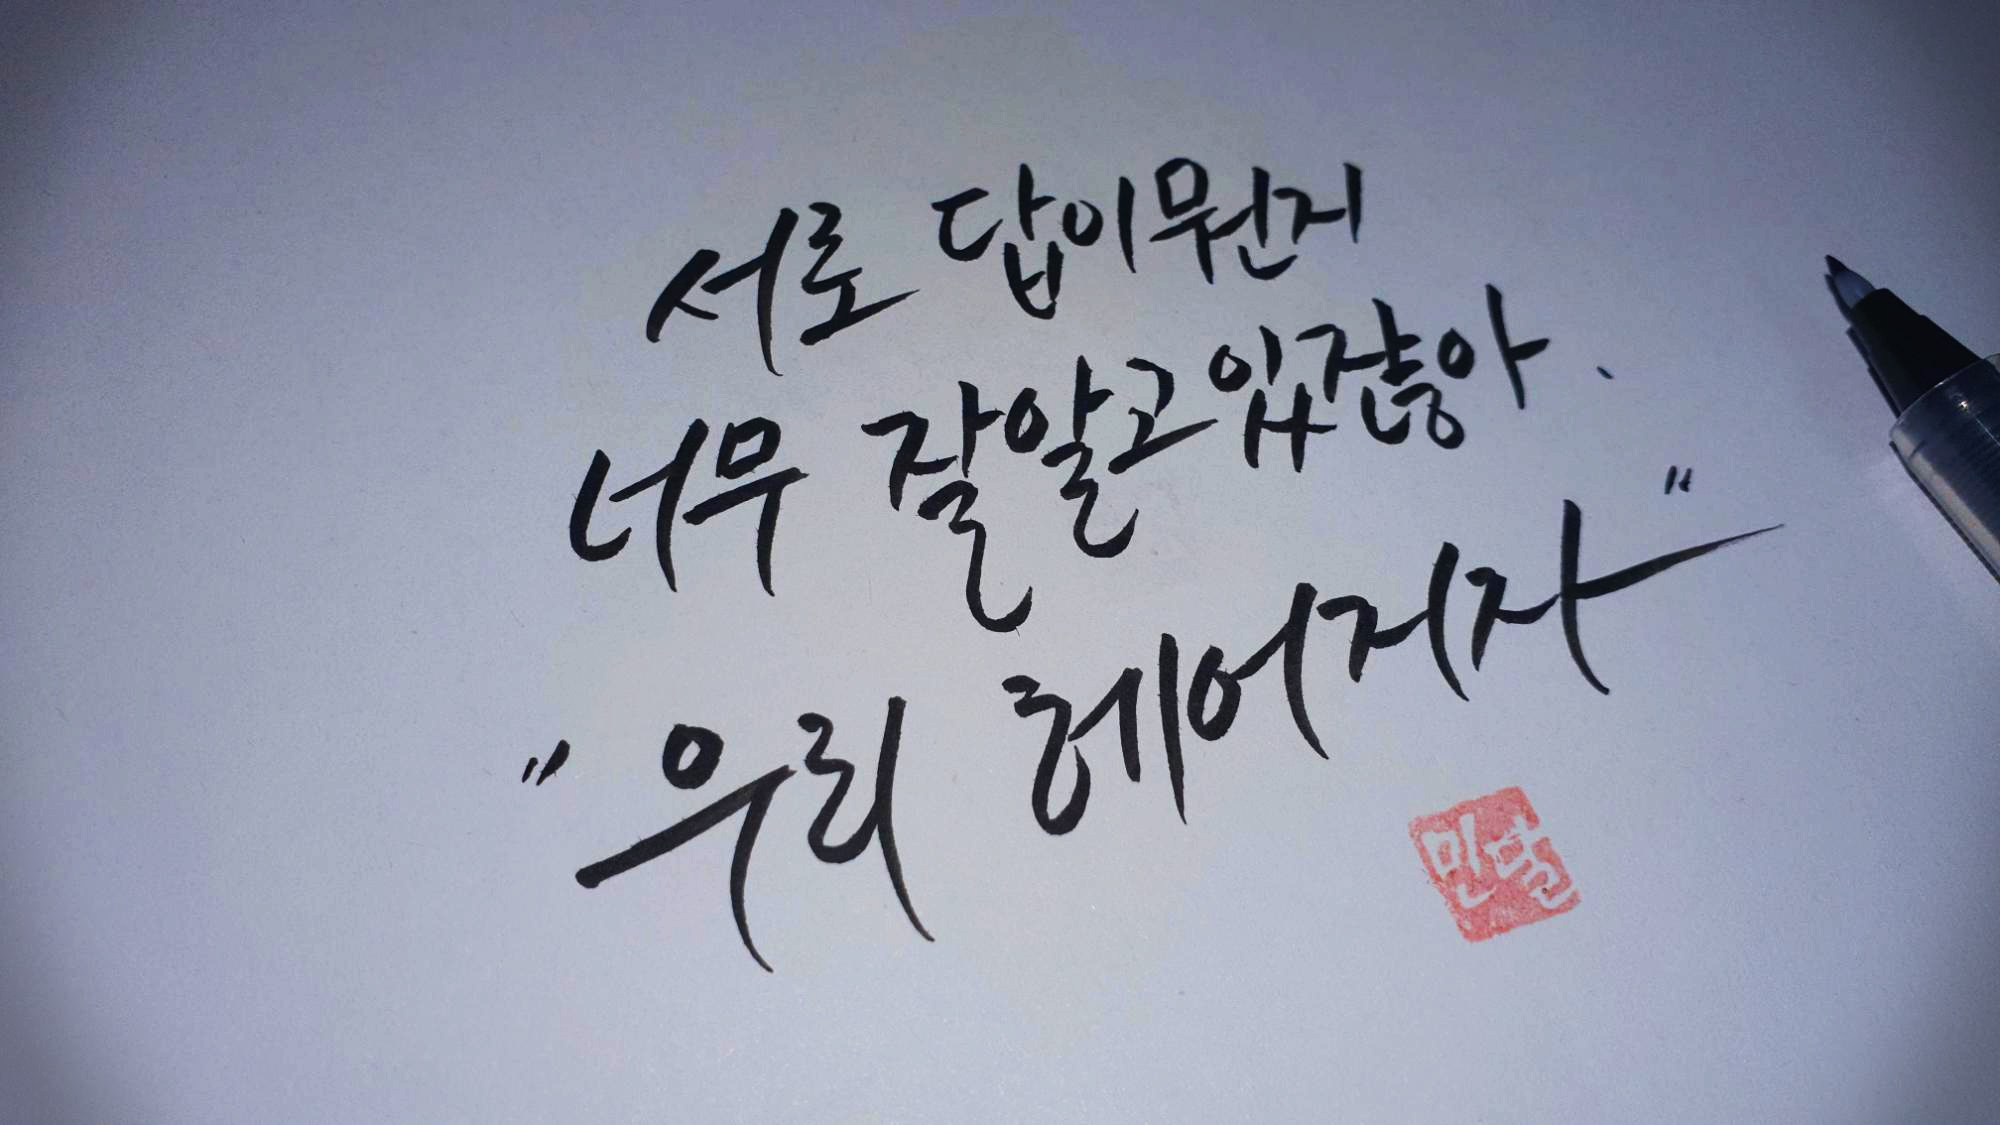 서로 답이 뭔지
너무 잘 알고 있잖아.
"우리 헤어지자"
민달